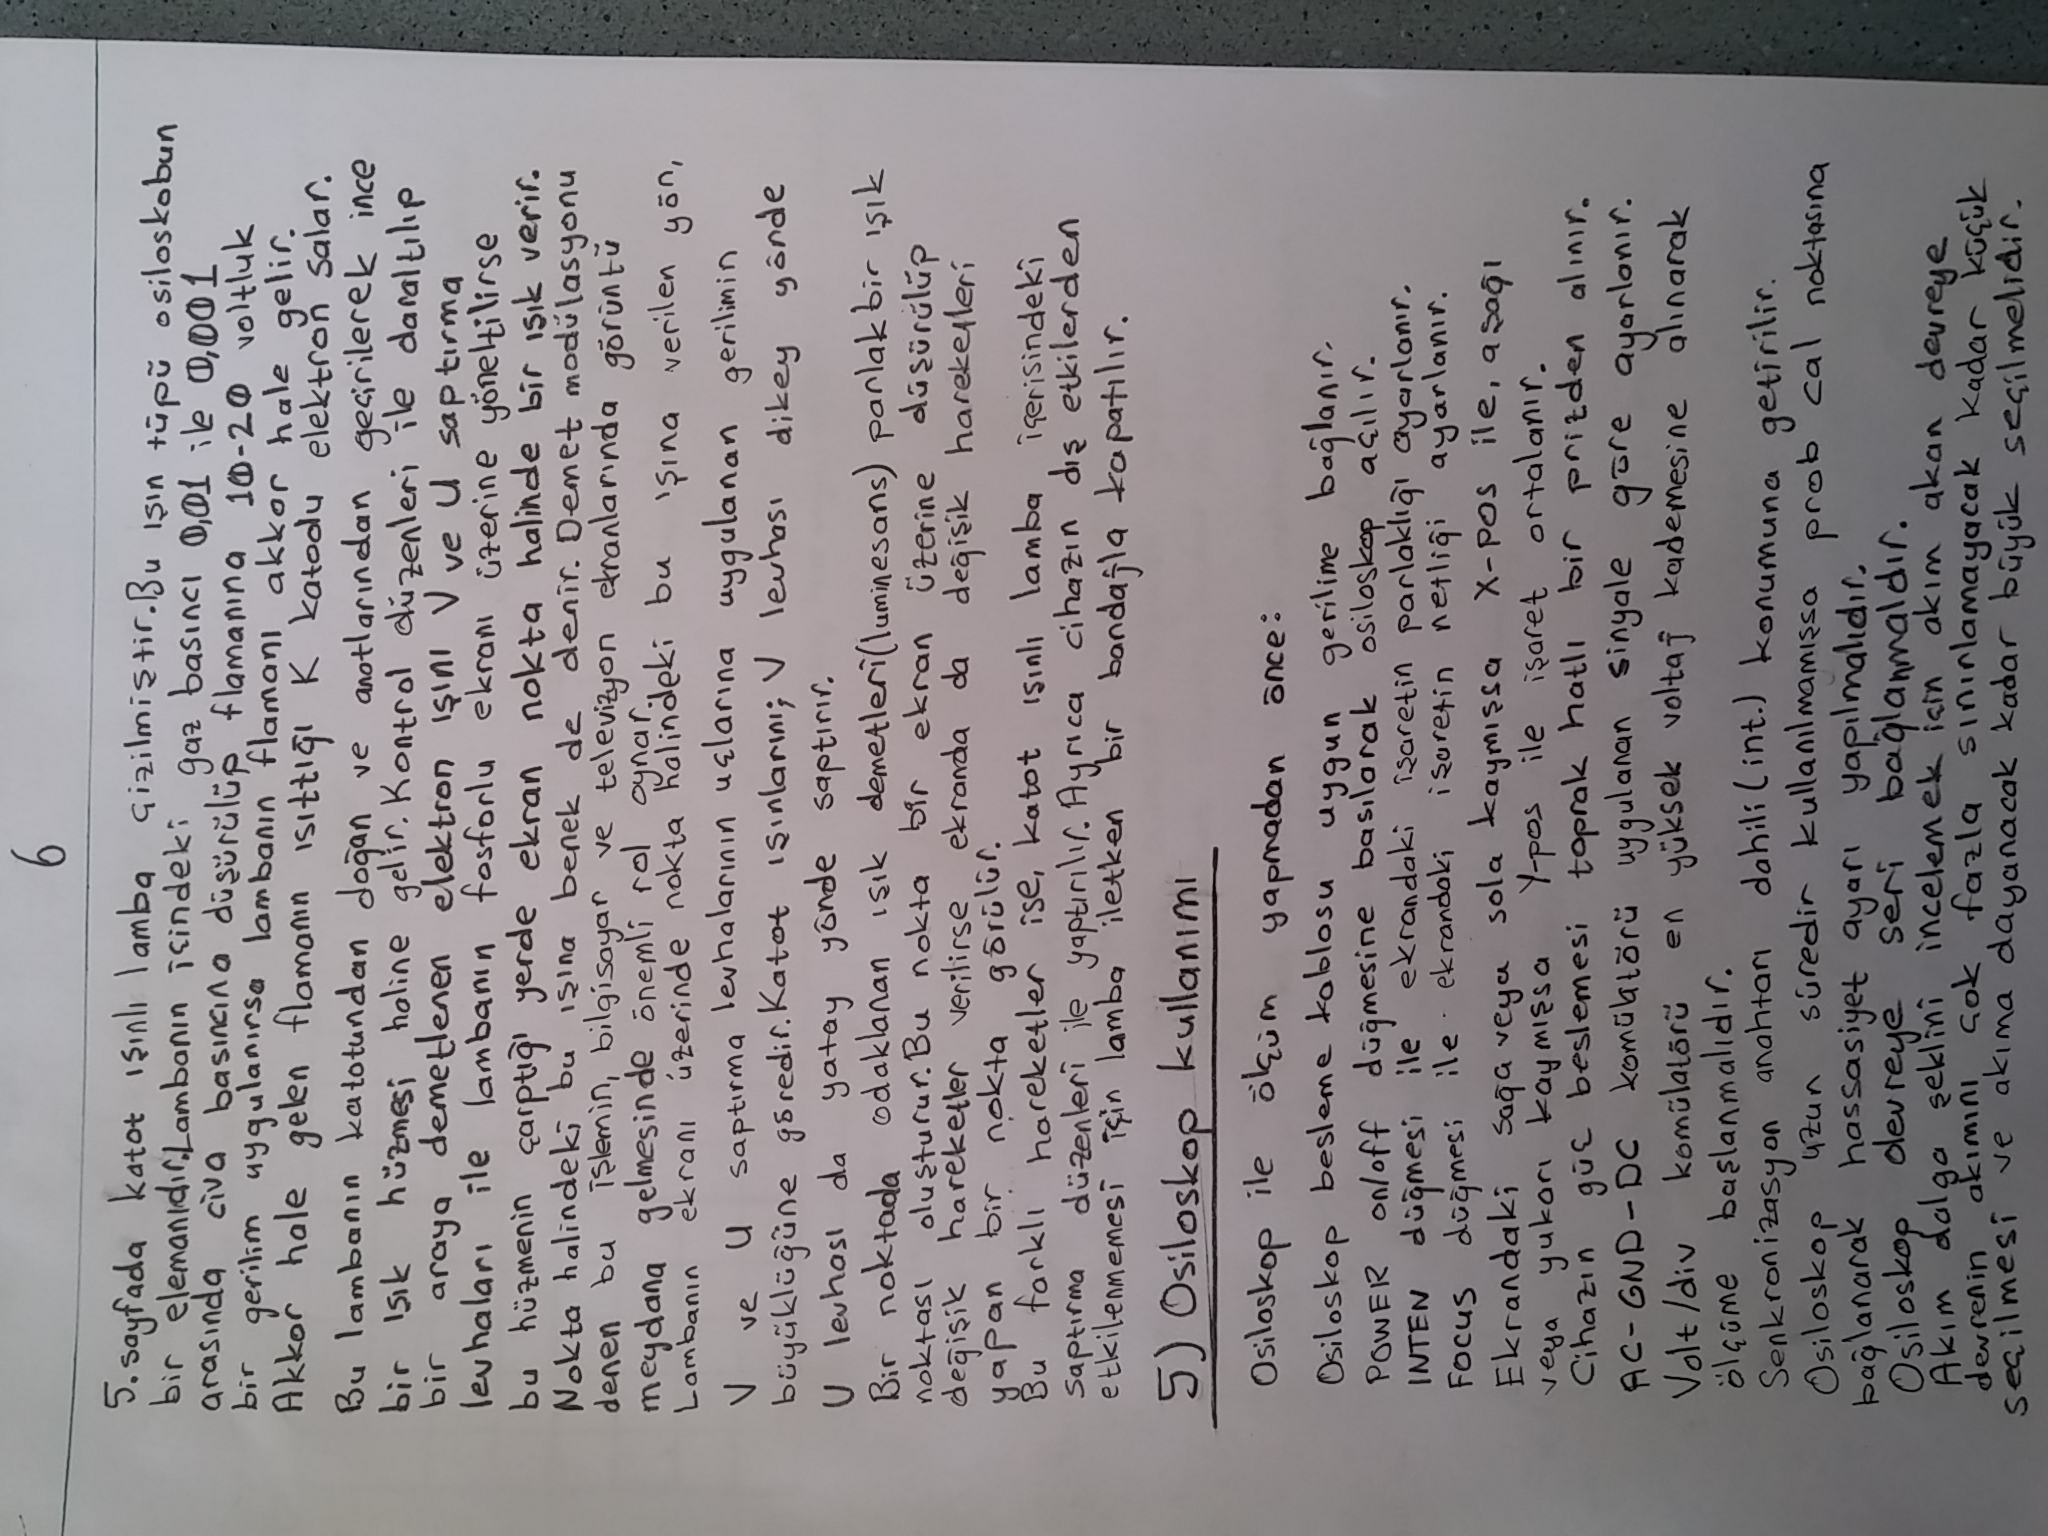 6
5. sayfada katot ışınlı lamba çizilmiştir. Bu ışın tüpü osiloskobun
bir elemanıdır. Lambanın içindeki gaz basıncı 0,01 ile 0,001
arasında civa basıncına düşürülüp flamanına 10-20 voltluk
bir gerilim uygulanırsa lambanın flamanı akkor hale gelir.
Akkor hale gelen flamanın ısıttığı K katodu elektron salar.
Bu lambanın katotundan doğan ve anotlarından geçirilerek ince
bir ışık hüzmesi haline gelir. Kontrol düzenleri ile daraltılıp
bir araya demetlenen elektron ışını V ve U saptırma
levhaları ile lambanın fosforlu ekranı üzerine yöneltilirse
bu hüzmenin çarptığı yerde ekran nokta halinde bir ışık verir.
Nokta halindeki bu ışına benek de denir. Demet modülasyonu
denen bu işlemin, bilgisayar ve televizyon ekranlarında görüntü
meydana gelmesinde önemli rol oynar.
Lambanın ekranı üzerinde nokta halindeki bu ışına verilen yön,
V ve U saptırma levhalarının uçlarına uygulanan gerilimin
büyüklüğüne göredir. Katot ışınlarını; V levhası dikey yönde
U levhası da yatay yönde saptırır.
Bir noktada odaklanan ışık demetleri(luminesans) parlak bir ışık
noktası oluşturur. Bu nokta bir ekran üzerine düşürülüp
değişik hareketler verilirse ekranda da değişik hareketleri
yapan bir nokta görülür.
Bu farklı hareketler ise, katot ışınlı lamba içerisindeki
saptırma düzenleri ile yaptırılır. Ayrıca cihazın dış etkilerden
etkilenmemesi için lamba iletken bir bandajla kapatılır.
5) Osiloskop kullanımı
Osiloskop ile ölçüm yapmadan önce:
Osiloskop besleme kablosu uygun gerilime bağlanır.
POWER on/off düğmesine basılarak osiloskop açılır.
INTEN düğmesi ile ekrandaki işaretin parlaklığı ayarlanır.
FOCUS düğmesi ile ekrandaki işaretin netliği ayarlanır.
Ekrandaki sağa veya sola kaymışsa X-pos ile, aşağı
veya yukarı kaymışsa Y-pos ile işaret ortalanır.
Cihazın güç beslemesi toprak hatlı bir prizden alınır.
AC-GND-DC komülatörü uygulanan sinyale göre ayarlanır.
Volt/div komülatörü en yüksek voltaj kademesine alınarak
ölçüme başlanmalıdır.
Senkronizasyon anahtarı dahili (int.) konumuna getirilir.
Osiloskop uzun süredir kullanılmamışsa prob cal noktasına
bağlanarak hassasiyet ayarı yapılmalıdır.
Osiloskop devreye seri bağlanmaldır.
Akım dalga şeklini incelemek için akım akan devreye
devrenin akımını çok fazla sınırlamayacak kadar küçük
seçilmesi ve akıma dayanacak kadar büyük seçilmelidir.